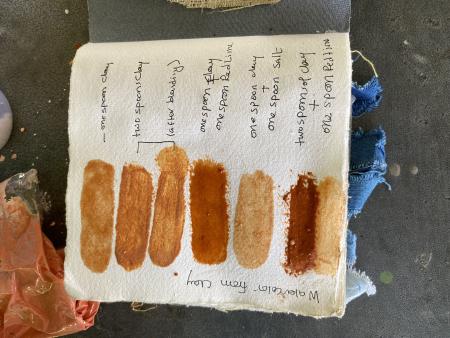 one spoon clay
two spoons clay
(after blending)
one spoon clay
one spoon
one spoon clay
+
one spoon salt
two spoons of clay
+
one spoon
Watercolor from Clay